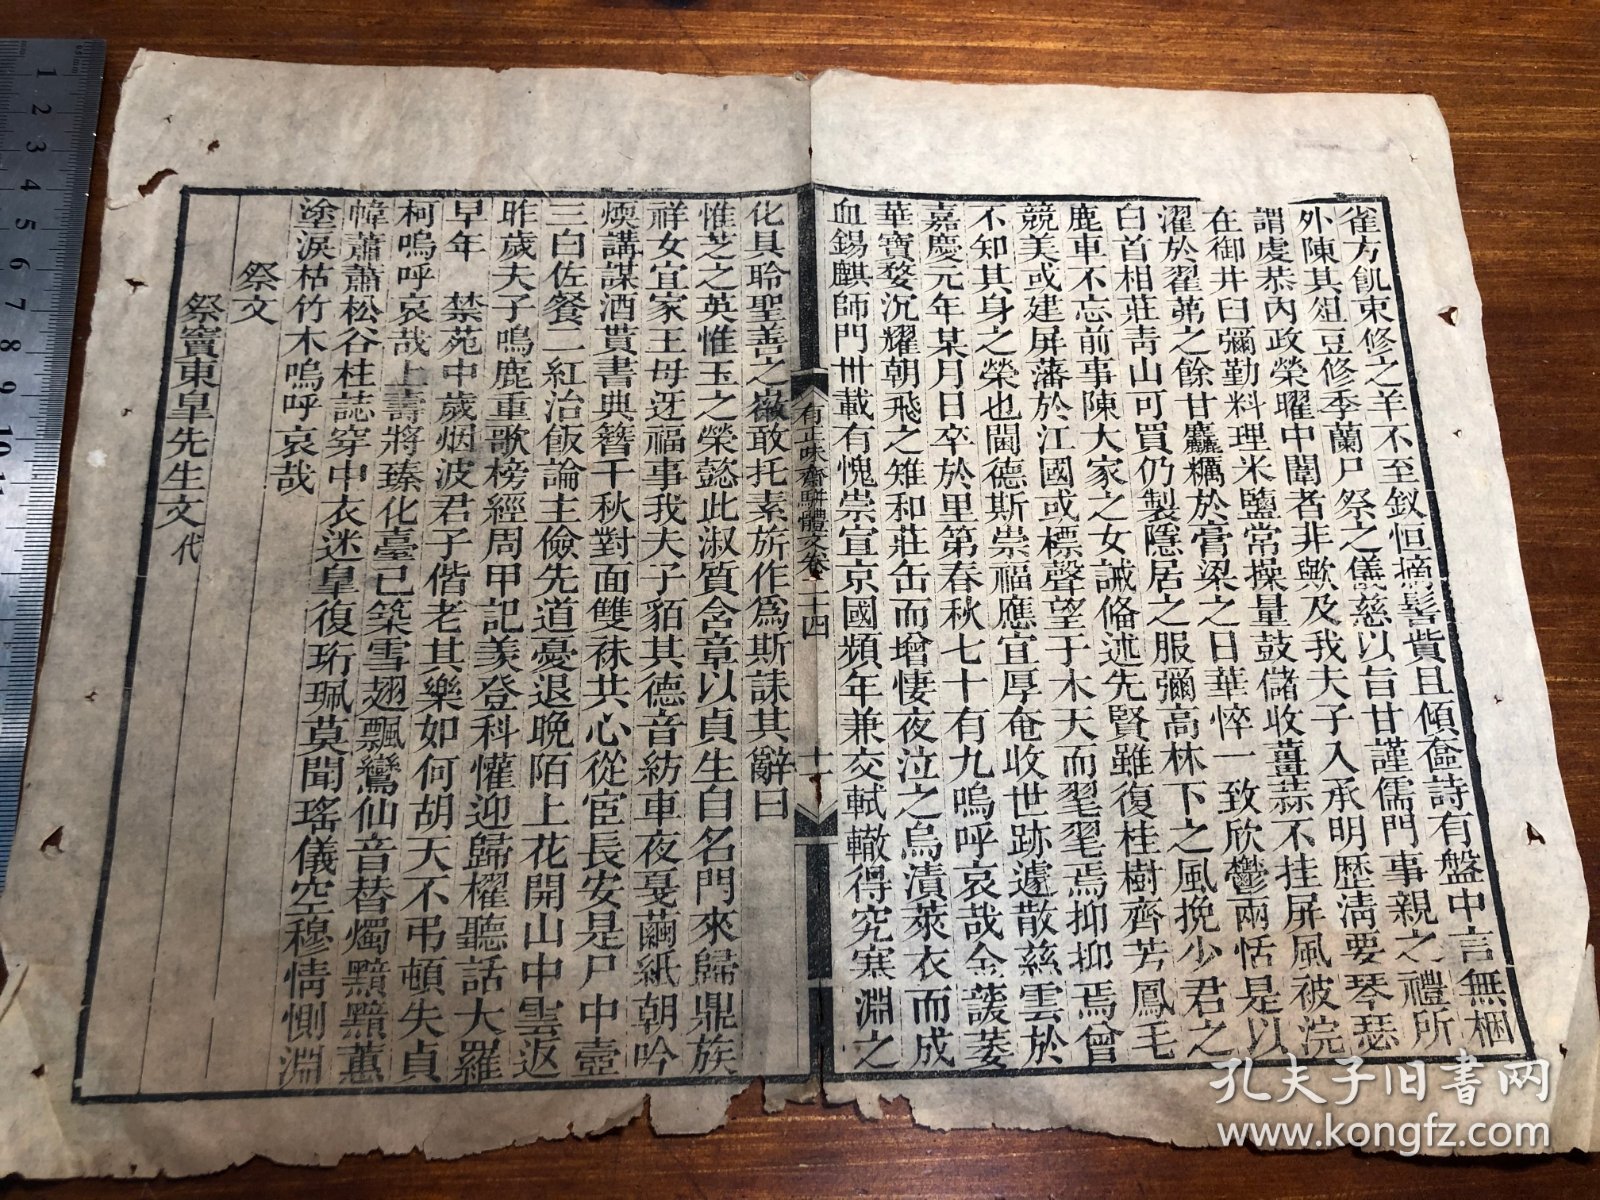 雀方飢束修之羊不至釵恒摘髻貲且傾奩詩有盤中言無梱
外陳其俎豆修季蘭尸祭之儀慈以旨甘謹儒門事親之禮所
謂虔恭內政榮曜中闈者非歟及我夫子入承明歴清要琴瑟
在御井臼彌勤料理米鹽常操量鼓儲收薑蒜不挂屏風被浣
濯於翟茀之餘甘麤糲於膏粱之日華悴一致欣鬱兩恬是以
白首相莊靑山可買仍製隱居之服彌高林下之風挽少君之
鹿車不忘前事陳大家之女誡俻述先賢雖復桂樹齊芳鳳毛
競美或建屏藩於江國或標聲望于木天而翟翟焉抑抑焉曾
不知其身之榮也閫德斯崇福應宜厚奄收世跡遽散慈雲於
嘉慶元年某月日卒於里第春秋七十有九嗚呼哀哉金萎
華寶婺沉耀朝飛之雉和莊缶而增悽夜泣之烏漬萊衣而成
血錫麒師門卅載有愧崇宣京國頻年兼交軾轍得究寒淵之
有正味齋駢體文卷二十四
十一
化具聆聖善之徽敢托素旂作爲斯誄其辭曰
惟芝之英惟玉之榮懿此淑質含章以貞生自名門來歸鼎族
祥女宜家王母迓福事我夫子貊其德音紡車夜戛繭紙朝吟
煗講謀酒貰書典簪千秋對面雙袾共心從宦長安是尸中壼
三白佐餐一紅治飯論主儉先道憂退晩陌上花開山中雲返
昨歲夫子鳴鹿重歌榜經周甲記羨登科懽迎歸櫂聽話大羅
早年 禁苑中歲烟波君子偕老其樂如何胡天不弔頓失貞
柯嗚呼哀哉上壽將臻化臺已築雪翅飄鸞仙音替燭黯黯蕙
幃蕭蕭松谷柱誌穿中衣迷皇復珩珮莫聞瑤儀空穆情惻淵
塗淚枯竹木嗚呼哀哉
祭文
祭竇東皐先生文代
孔夫子旧书网
www.kongfz.com